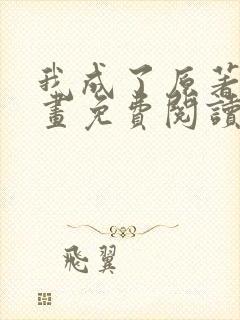 我成了原著
畫免費閱讀
飛翼